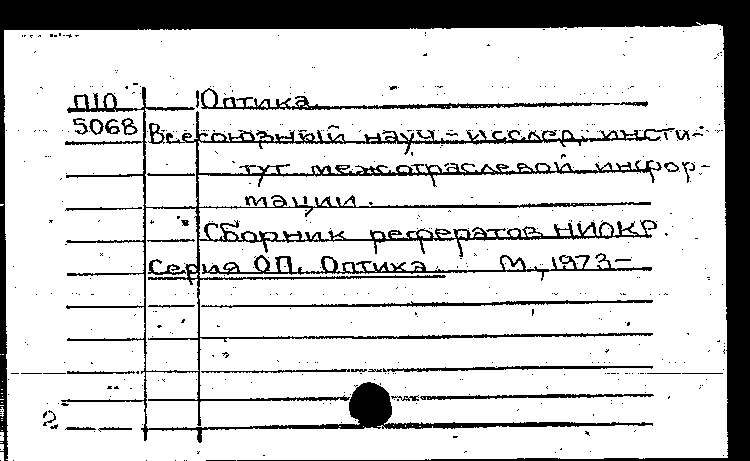 П10 Оптика.
5068 Всесоюзный науч.-исслед. инсти-
тут межотраслевой инфор-
мации.
Сборник рефератов НИОКР.
Серия ОП. Оптика. М., 1973-
2